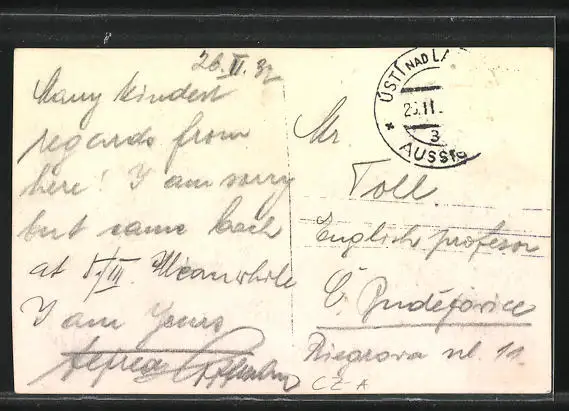 26.II.32
Many kindest
regards from
here! I am sorry
but came back
at 1/III. Meanwhile
I am Yours
Alfred
ÚSTÍ NAD LA
26.II.
3
AUSSIG
Mr
Toll
English profesor
Č. Budějovice
Riegrova ul. 11
CZ-A